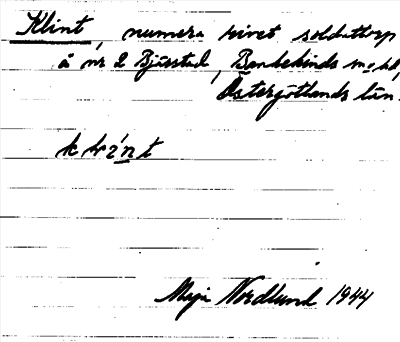 Klint, numera rivet soldattorp
å nr 2 Bjärstad, Bankekinds m o hd,
Östergötlands län.
Maja Nordlund 1944